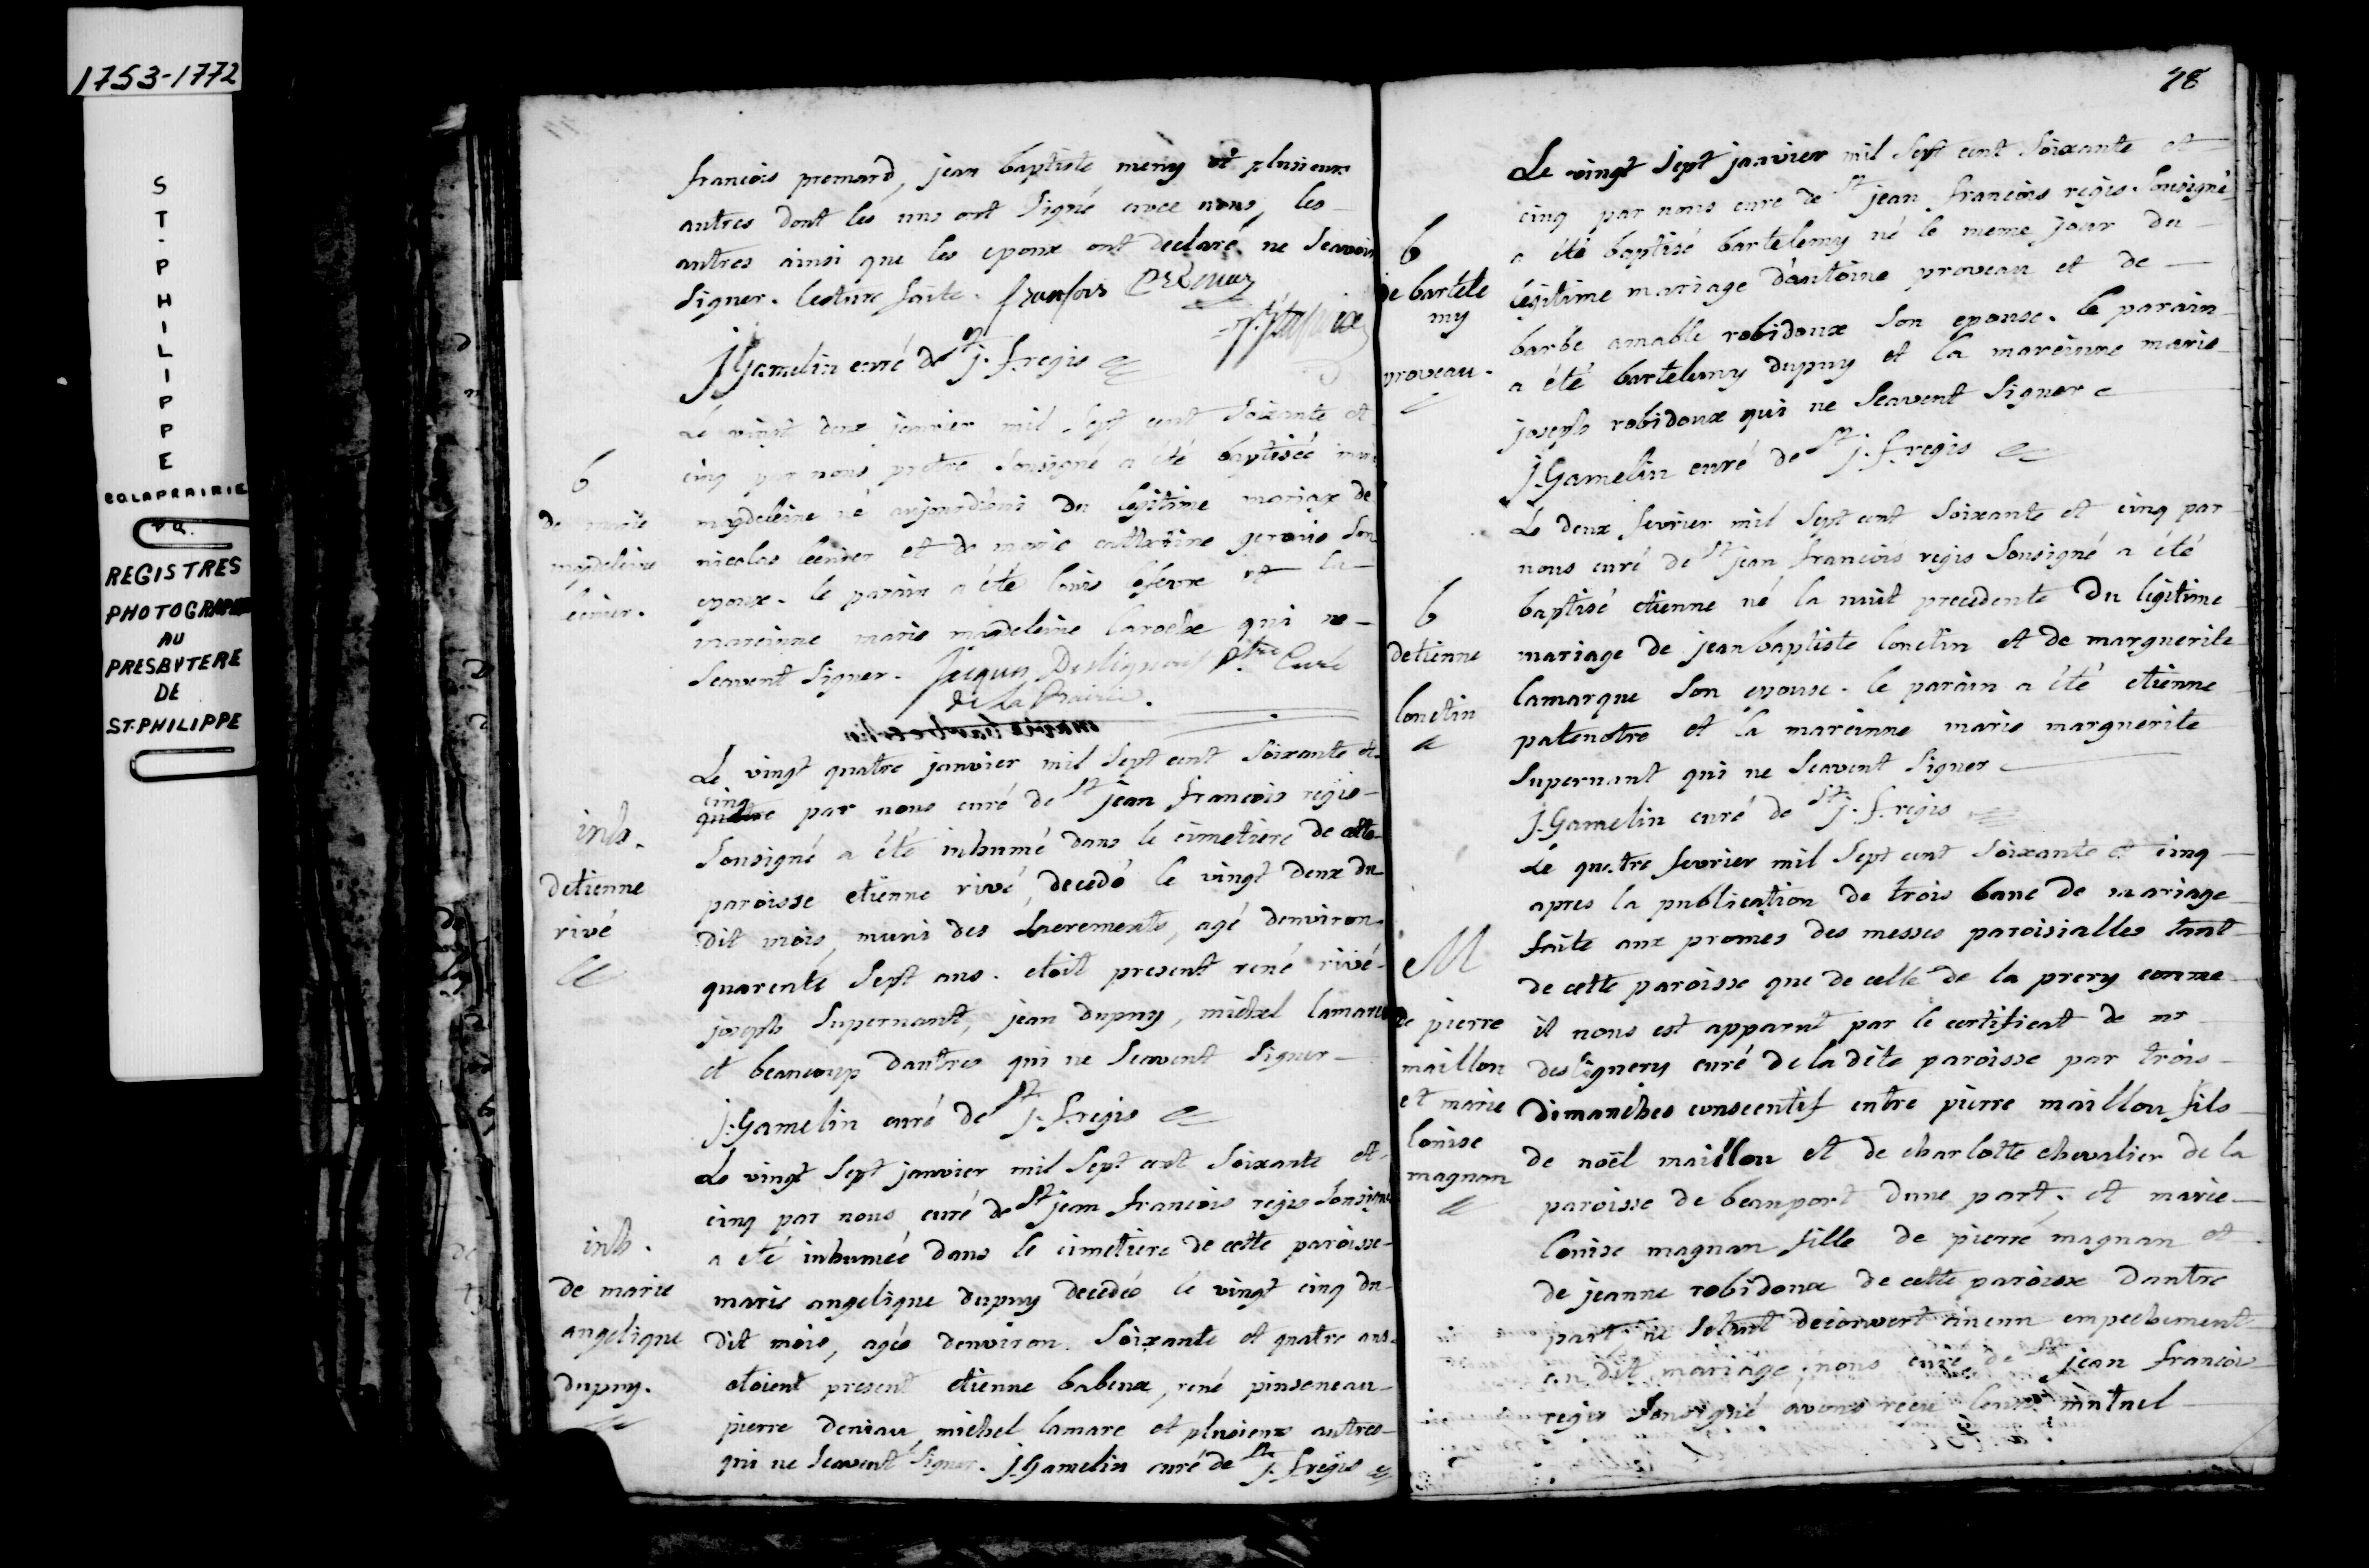 1753-1772
ST.PHILIPPE
COLAPRAIRIE
REGISTRES
PHOTOGRAPHIE
AU
PRESBYTERE
DE
ST-PHILIPPE
francois premard, jean baptiste meny et plusieurs
autres dont les uns ont signé avec nous, les
autres ainsi que les epoux ont declaré ne scavoir
signer. lecture faite. fransois
J Gamelin curé de St j. f. regis
b
de marie
magdeleine
Le vingt deux janvier mil sept cent soixante et
cinq par nous prêtre sousigné a été baptisée marie
magdeleine né aujourdhui du legitime mariage de
nicolas et de marie catherine gervais son
epoux. le parain a été louis lefevre et la
mareinne marie magdeleine laroche qui ne
scavent signer. Jacques Desligneris Ptre Curé
de La Prairie.
inh.
detienne
rivé
Le vingt quatre janvier mil sept cent soixante et
cinq
quatre par nous curé de St jean francois regis
sousigné a été inhumé dans le cimetiere de cette
paroisse etienne rivé, decedé le vingt deux du
dit mois, muni des sacrements, agé denviron
quarente sept ans. etoit present rené rivé
joseph supernant, jean dupuy, michel lamare
et beaucoup dautres qui ne scavent signer
j. Gamelin curé de St j. f. regis
inh.
de marie
angelique
dupuy.
Le vingt sept janvier mil sept cent soixante et
cinq par nous curé de St jean francois regis sousigné
a été inhumée dans le cimetiere de cette paroisse
marie angelique dupuy decedée le vingt cinq du
dit mois, agée denviron soixante et quatre ans.
etoient present etienne babeux, rené pinseneau
pierre deniau, michel lamare et plusieurs autres
qui ne scavent signer. j. Gamelin curé de St j. f. regis
78
b
de bartele
my
proveau.
Le vingt sept janvier mil sept cent soixante et
cinq par nous curé de St jean francois regis sousigné
a été baptisé bartelemy né le meme jour du
legitime mariage dantoine proveau et de
barbe amable robidoux son epouse. le parain
a été bartelemy dupuy et la mareinne marie
joseph robidoux qui ne scavent signer
j. Gamelin curé de St j. f. regis
b
detienne
lonctin
Le deux fevrier mil sept cent soixante et cinq par
nous curé de St jean francois regis sousigné a été
baptisé etienne né la nuit precedente du legitime
mariage de jean baptiste lonctin et de marguerite
lamarque son epouse. le parain a été etienne
patenotre et la mareinne marie marguerite
supernant qui ne scavent signer
j. Gamelin curé de St j. f. regis
M
de pierre
maillou
et marie
louise
magnan
Le quatre fevrier mil sept cent soixante et cinq
apres la publication de trois banc de mariage
faite aux promes des messes paroisialles tant
de cette paroisse que de celle de la prery comme
il nous est apparut par le certificat de mr
deslignery curé de ladite paroisse par trois
dimanches consecutif entre pierre maillou fils
de noël maillou et de charlotte chevalier de la
paroisse de beauport dune part. et marie
louise magnan fille de pierre magnan et
de jeanne robidoux de cette paroisse dautre
part, ne setant decouvert aucun empechement
au dit mariage, nous curé de St jean francois
regis sousigné avons recu leurs mutuel